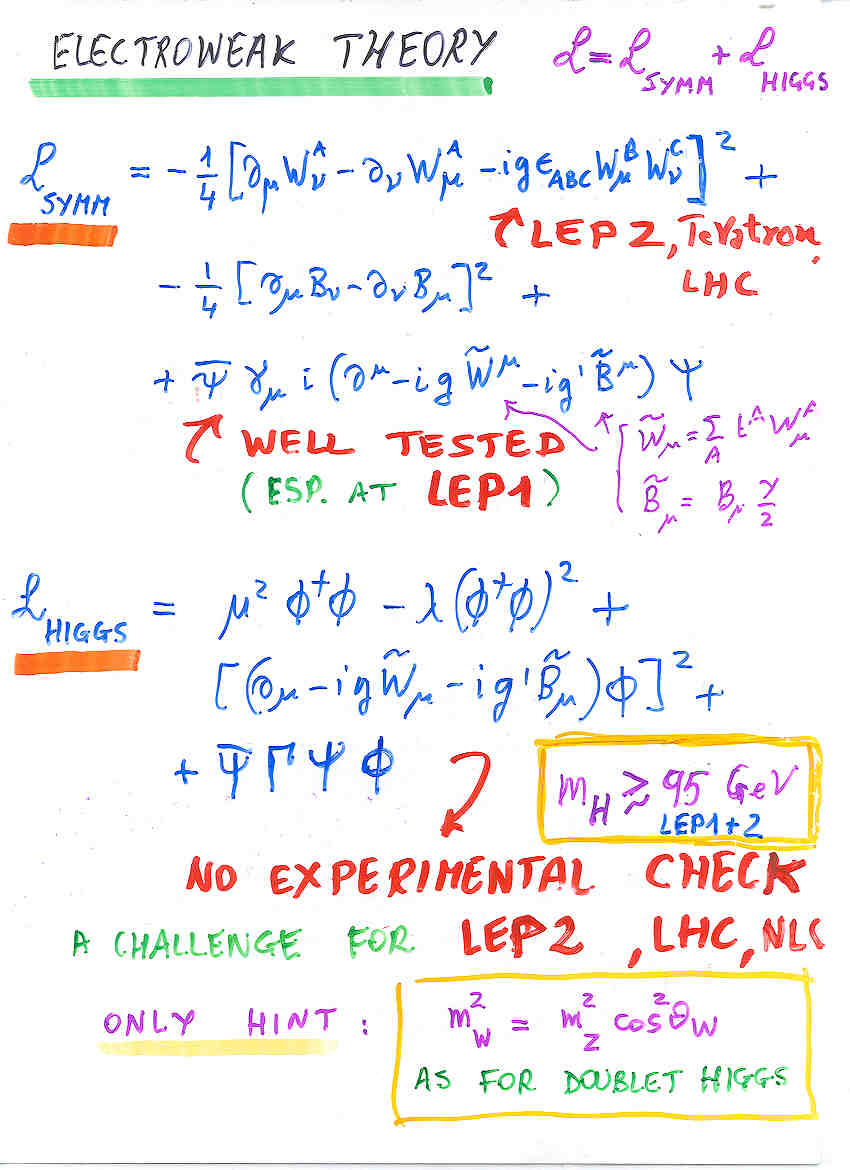 ELECTROWEAK THEORY ℒ = ℒ_SYMM + ℒ_HIGGS
ℒ_SYMM = -1/4 [∂_μ W_ν^A - ∂_ν W_μ^A - i g ε_ABC W_μ^B W_ν^C]² +
LEP2, Tevatron,
LHC
- 1/4 [∂_μ B_ν - ∂_ν B_μ]² +
+ ψ̄ γ_μ i (∂^μ - i g W̃^μ - i g' B̃^μ) ψ
WELL TESTED W̃_μ = Σ_A t^A W_μ^A
(ESP. AT LEP1) B̃_μ = B_μ Y/2
ℒ_HIGGS = μ² φ†φ - λ (φ†φ)² +
[(∂_μ - i g W̃_μ - i g' B̃_μ) φ]² +
+ ψ̄ Γ ψ φ
m_H ≳ 95 GeV
LEP1+2
NO EXPERIMENTAL CHECK
A CHALLENGE FOR LEP2, LHC, NLC
ONLY HINT : m_W² = m_Z² cos²θ_W
AS FOR DOUBLET HIGGS